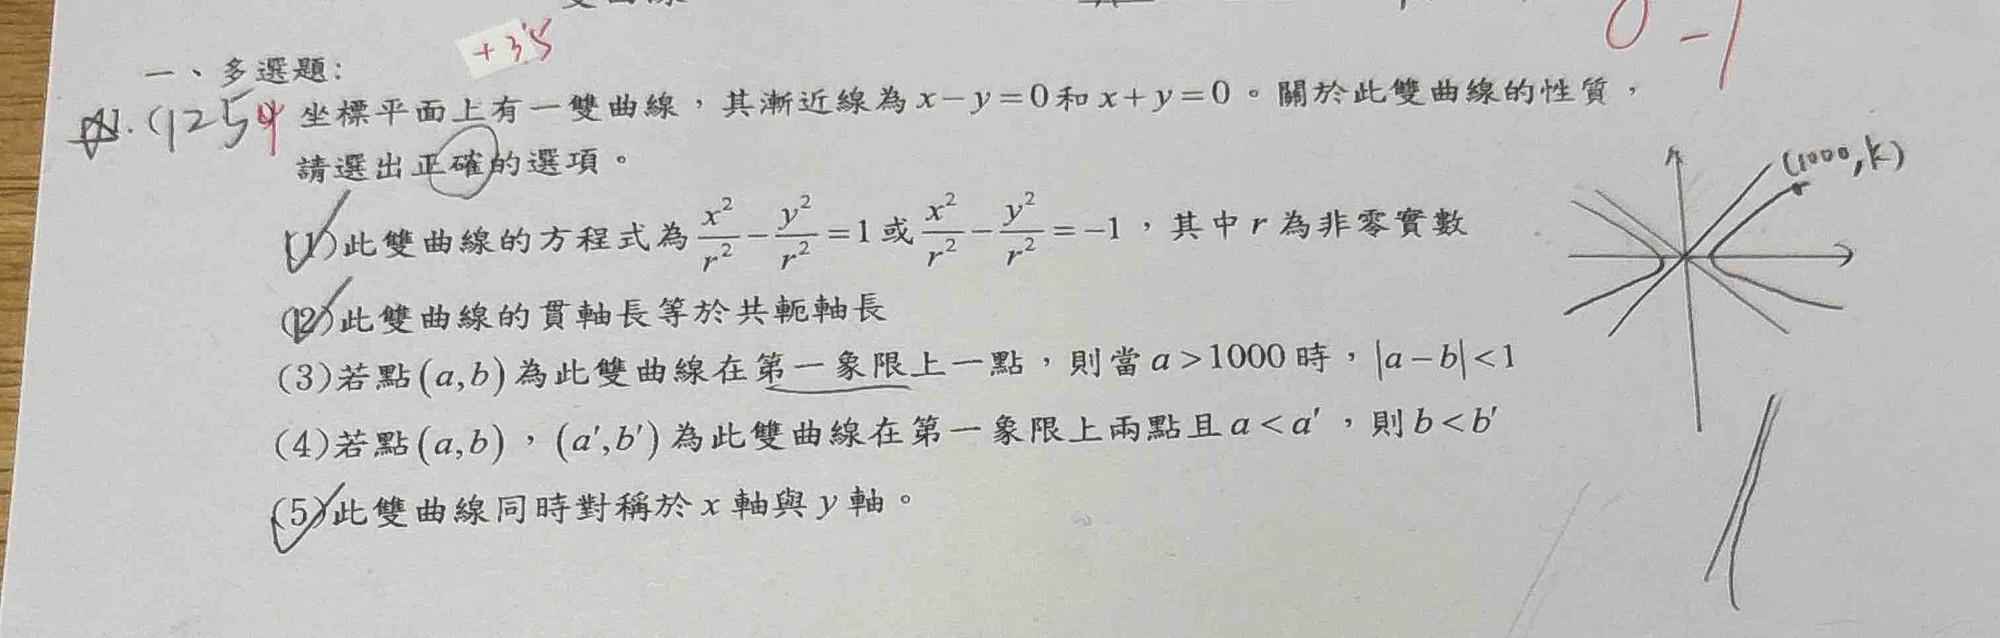 +3.5
一、多選題：
1. (1254 坐標平面上有一雙曲線，其漸近線為 x−y=0 和 x+y=0。關於此雙曲線的性質，
請選出正確的選項。
(1000,k)
(1)此雙曲線的方程式為 x²/r² − y²/r² =1 或 x²/r² − y²/r² =−1，其中 r 為非零實數
(2)此雙曲線的貫軸長等於共軛軸長
(3)若點(a,b)為此雙曲線在第一象限上一點，則當 a>1000 時，|a−b|<1
(4)若點(a,b)，(a′,b′)為此雙曲線在第一象限上兩點且 a<a′，則 b<b′
(5)此雙曲線同時對稱於 x 軸與 y 軸。